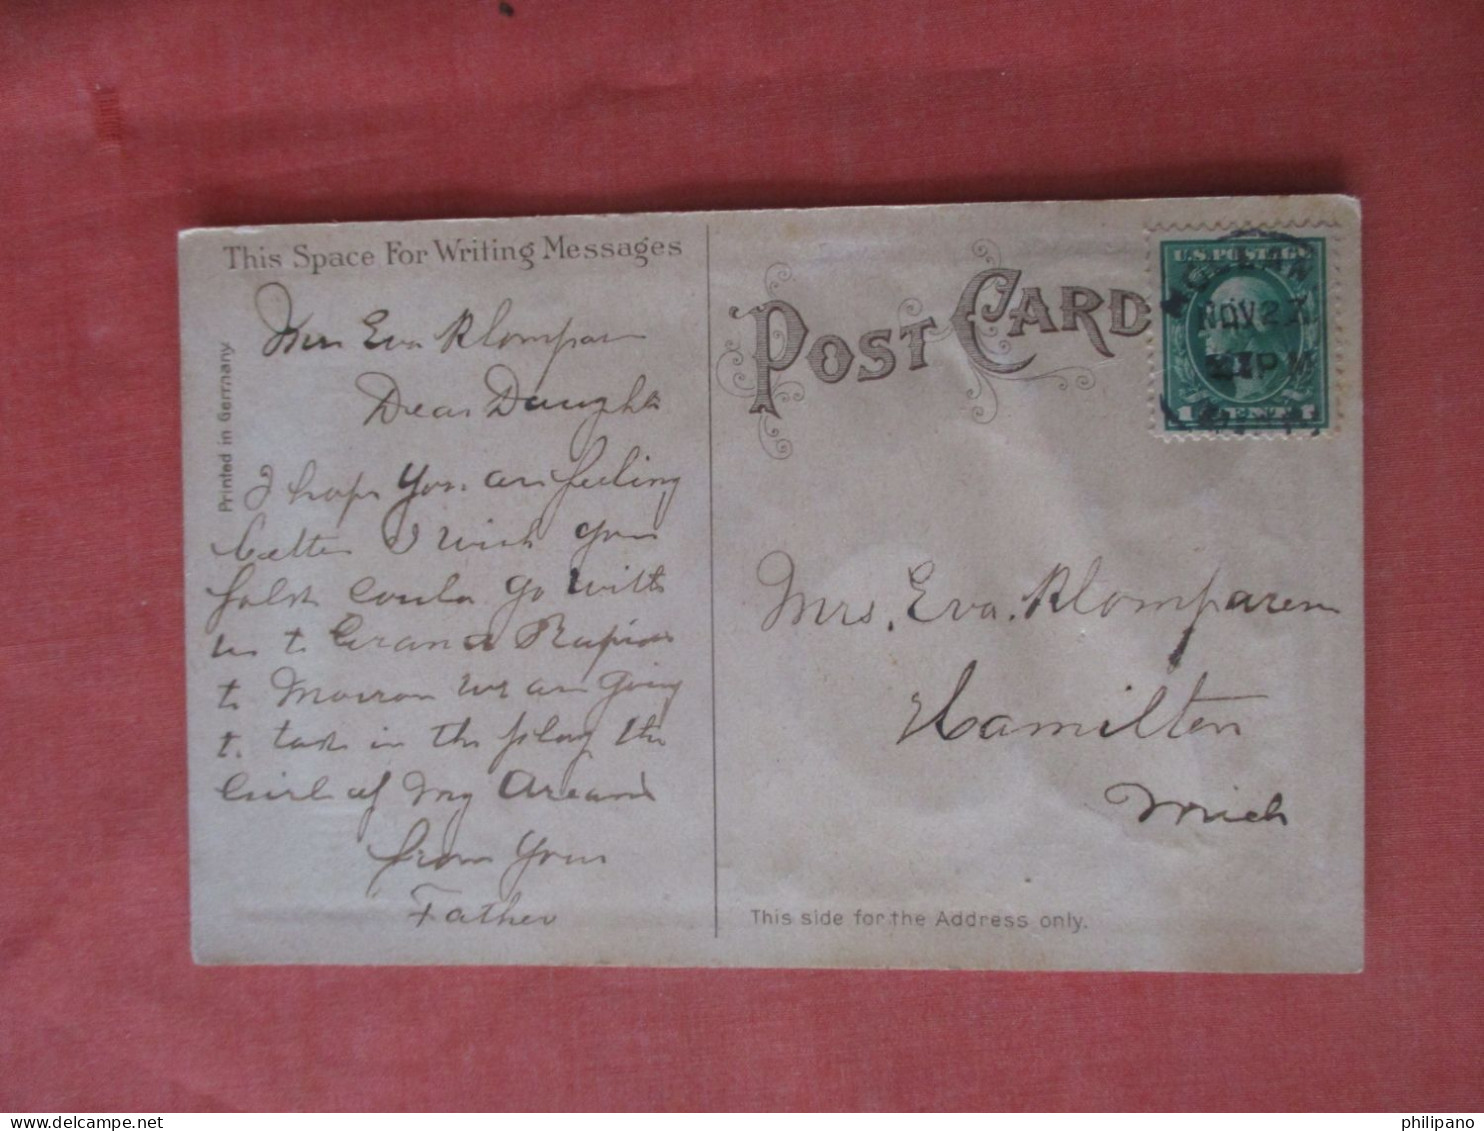 This Space For Writing Messages
Printed in Germany.
Mrs Eva Klomparen
Dear Daughter
I hope you are feeling
better I wish you
folks could go with
us to Grand Rapids
to Morrow we are going
to take in the play the
Girl of My Dreams
from your
Father
POST CARD
U.S. POSTAGE
HOLLAND
NOV 27
PM
1 CENT 1
Mrs. Eva. Klomparen
Hamilton
Mich
This side for the Address only.
philipano